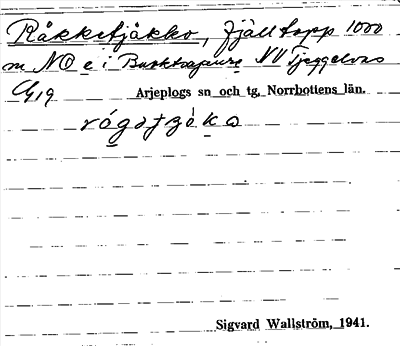 Råkketjåkko, fjälltopp 1000
m NO e i Buoktsajaure NV Tjeggelvas
G19 Arjeplogs sn och tg, Norrbottens län.
Sigvard Wallström, 1941.